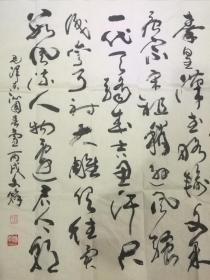 秦皇漢武略輸文采
唐宗宋祖稍遜風骚
一代天骄成吉思汗只
識弯弓射大雕俱往矣
数風流人物還看今朝
毛澤東沁園春雪丙戌